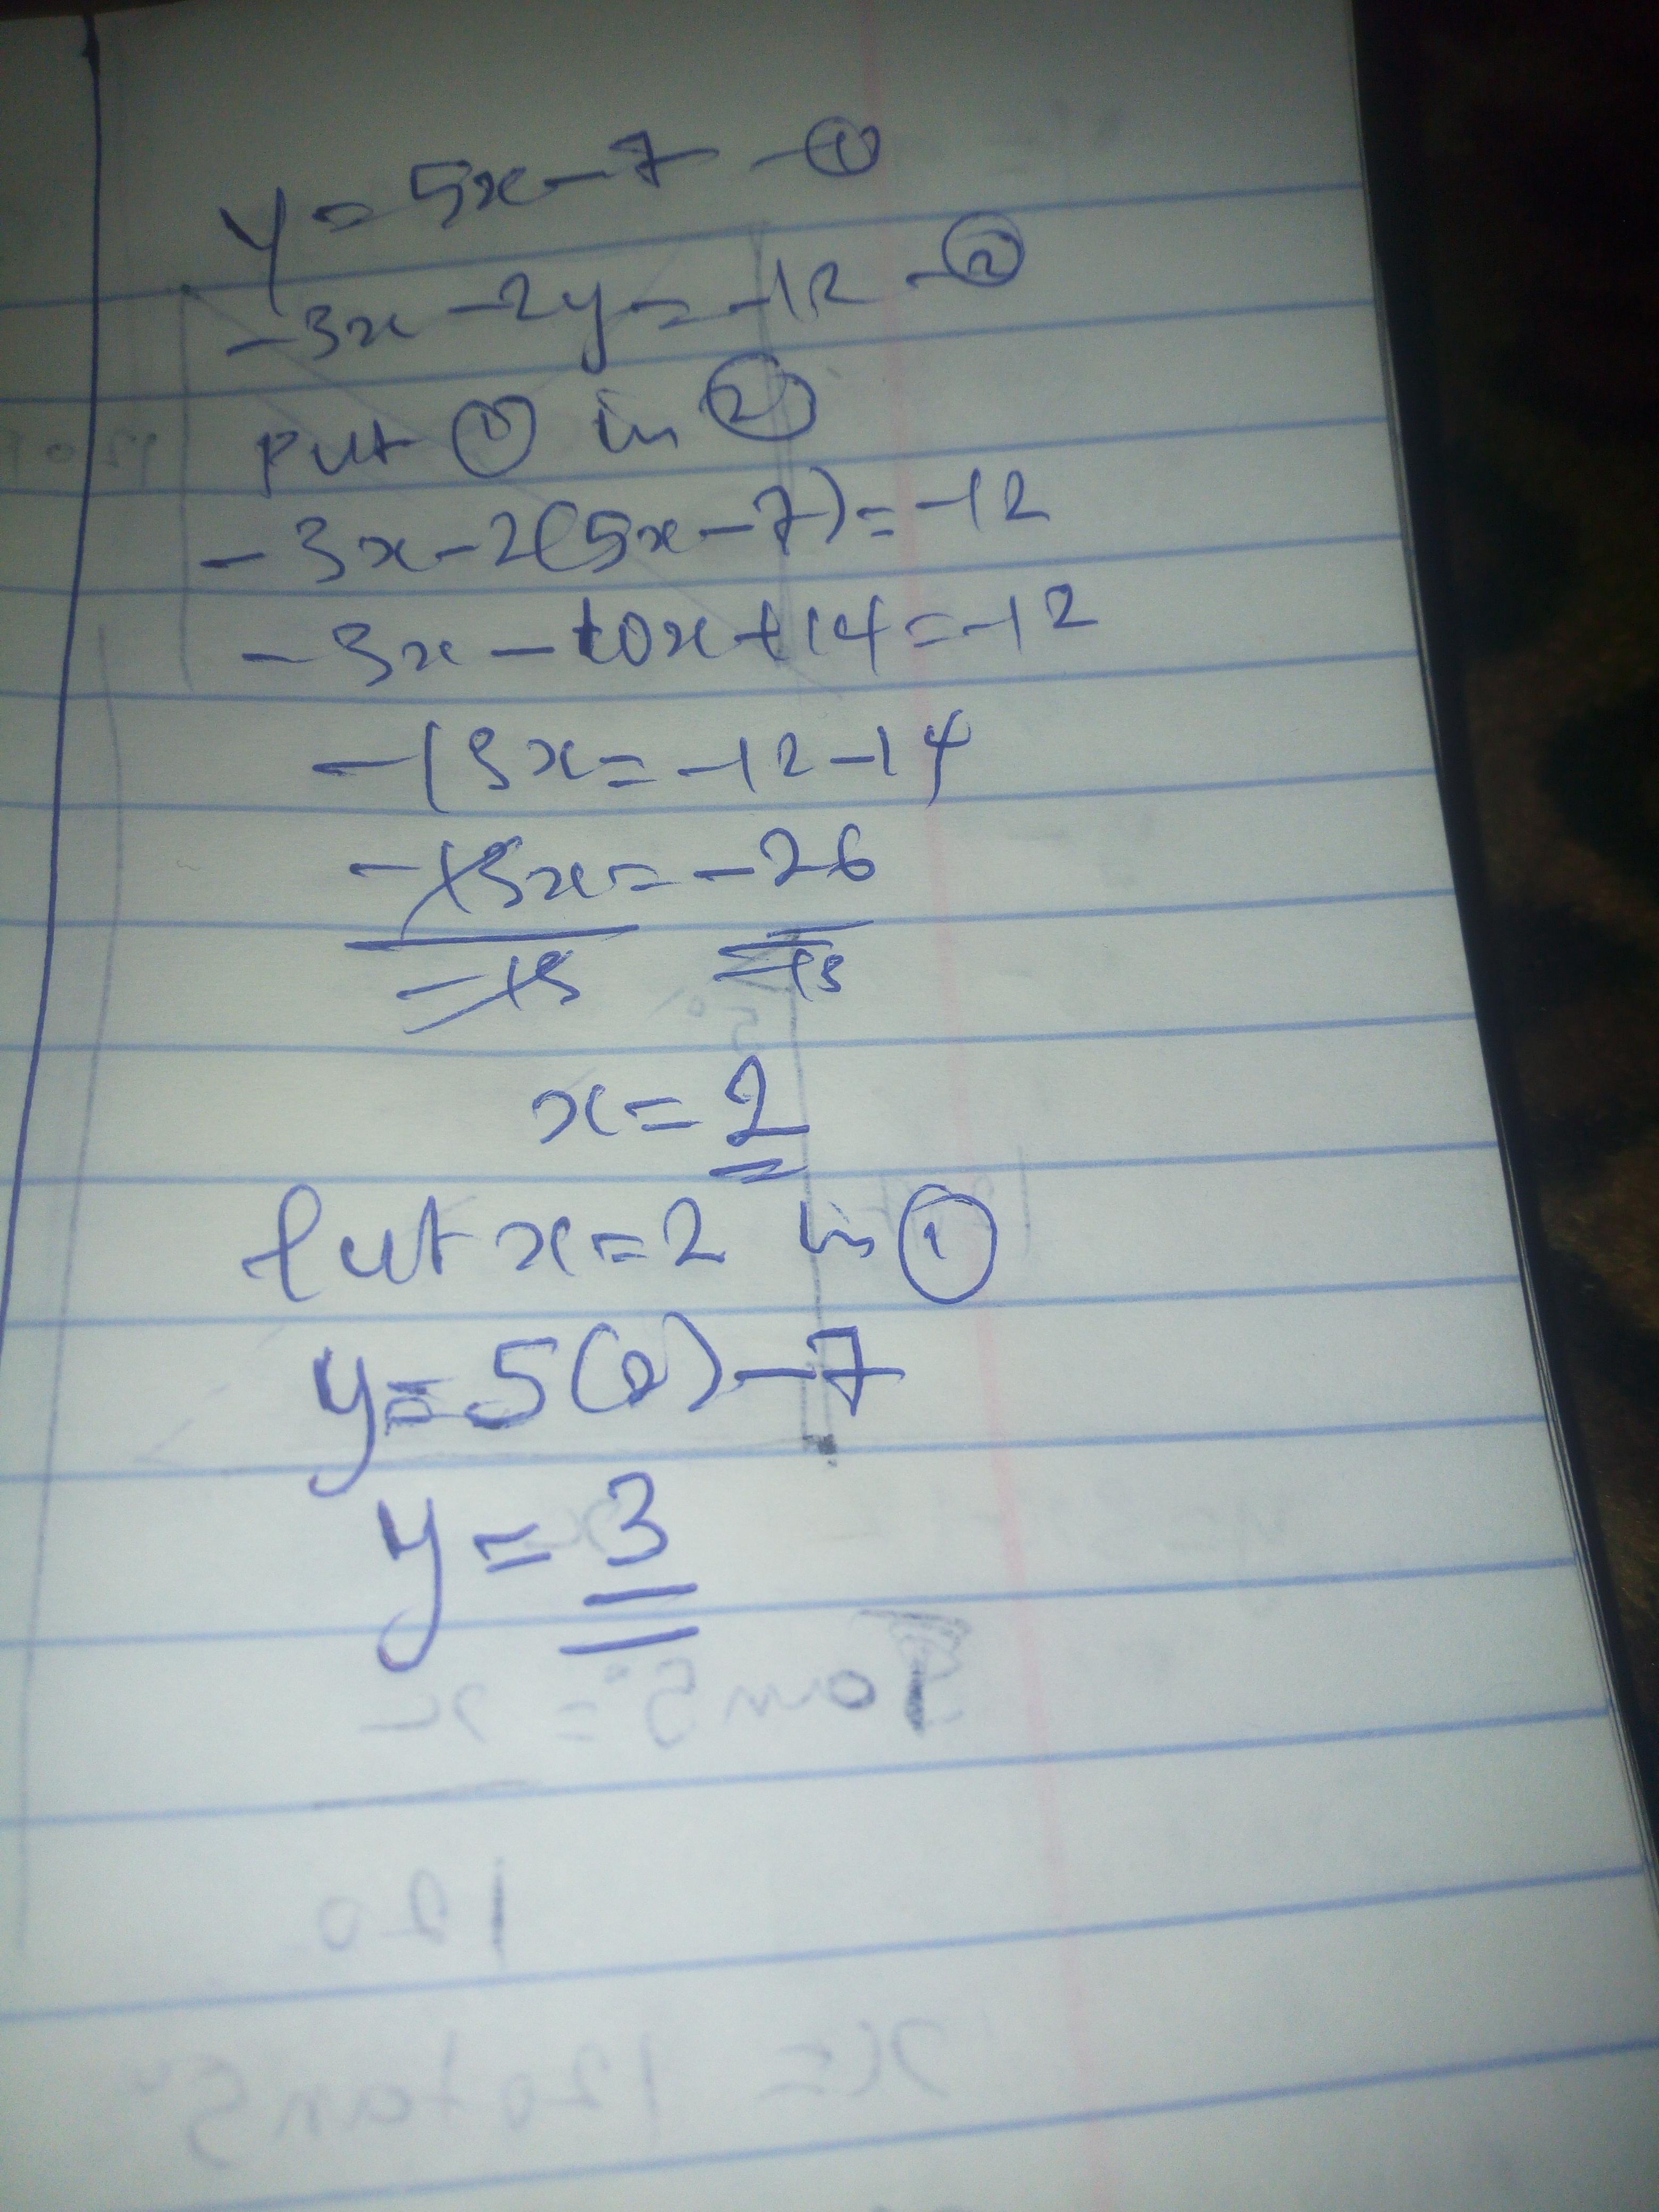 y = 5x - 7 - ①
-3x - 2y = -12 - ②
Put ① in ②
-3x - 2(5x - 7) = -12
-3x - 10x + 14 = -12
-13x = -12 - 14
-13x = -26
-13 -13
x = 2
Put x = 2 in ①
y = 5(2) - 7
y = 3